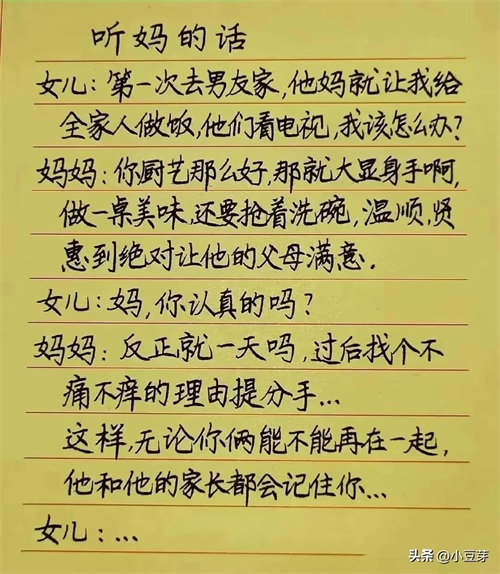 听妈的话
女儿：第一次去男友家，他妈就让我给
全家人做饭，他们看电视，我该怎么办？
妈妈：你厨艺那么好，那就大显身手啊，
做一桌美味，还要抢着洗碗，温顺，贤
惠到绝对让他的父母满意．
女儿：妈，你认真的吗？
妈妈：反正就一天吗，过后找个不
痛不痒的理由提分手…
这样，无论你俩能不能再在一起，
他和他的家长都会记住你…
女儿：…
头条 @小豆芽